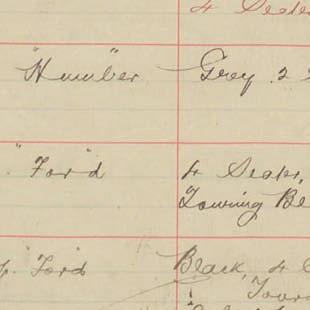 4 Seater
"Humber" Grey. 2
"Ford" 4 Seater,
Touring Bl
"Ford Black, 4
Tour